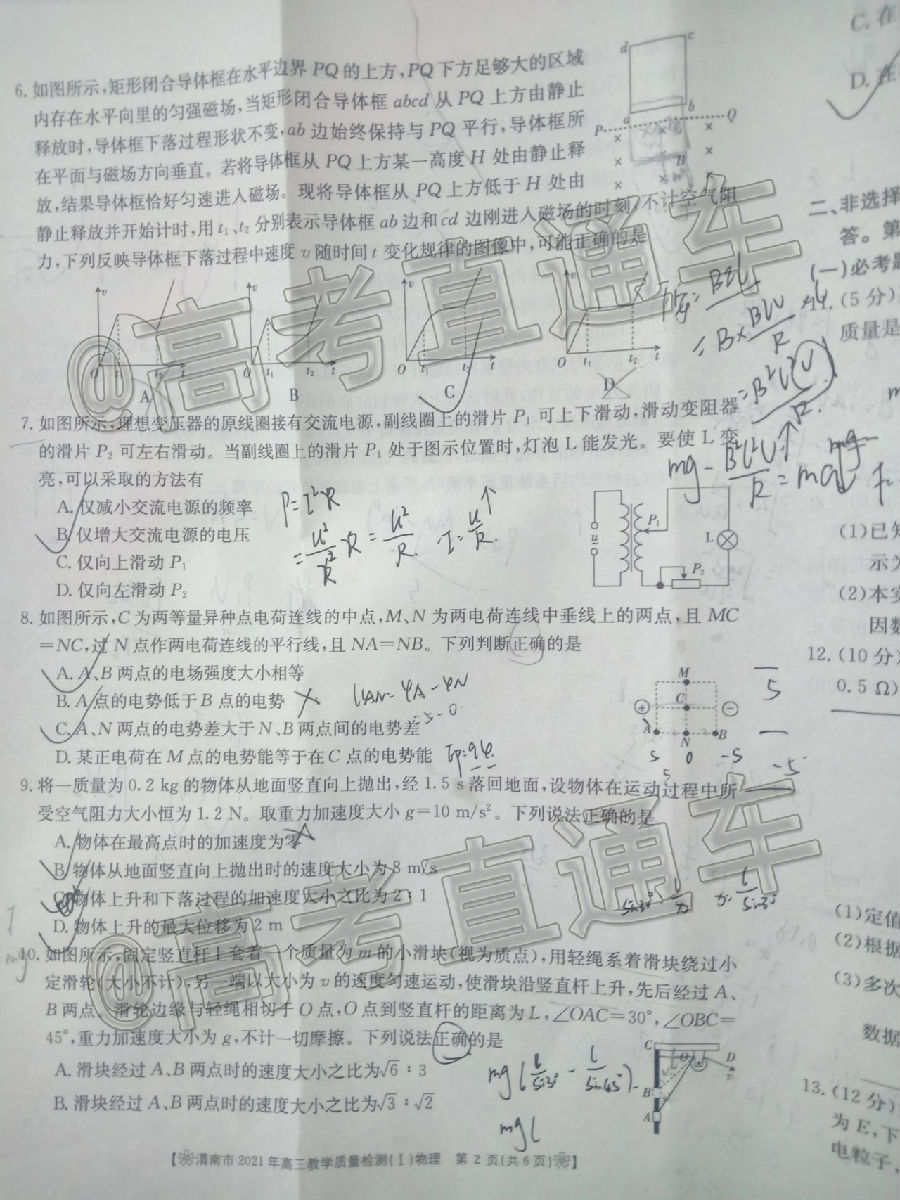 6. 如图所示,矩形闭合导体框在水平边界 PQ 的上方,PQ 下方足够大的区域
内存在水平向里的匀强磁场,当矩形闭合导体框 abcd 从 PQ 上方由静止
释放时,导体框下落过程形状不变,ab 边始终保持与 PQ 平行,导体框所
在平面与磁场方向垂直。若将导体框从 PQ 上方某一高度 H 处由静止释
放,结果导体框恰好匀速进入磁场。现将导体框从 PQ 上方低于 H 处由
静止释放并开始计时,用 t₁、t₂ 分别表示导体框 ab 边和 cd 边刚进入磁场的时刻,不计空气阻
力,下列反映导体框下落过程中速度 v 随时间 t 变化规律的图像中,可能正确的是
d c
a b
P Q
B
v v v v
O t₁ t₂ t
O t₁ t₂ t
O t₁ t₂ t
O t₁ t₂ t
A B C D
7. 如图所示,理想变压器的原线圈接有交流电源,副线圈上的滑片 P₁ 可上下滑动,滑动变阻器
的滑片 P₂ 可左右滑动。当副线圈上的滑片 P₁ 处于图示位置时,灯泡 L 能发光。要使 L 变
亮,可以采取的方法有
A. 仅减小交流电源的频率
B. 仅增大交流电源的电压
C. 仅向上滑动 P₁
D. 仅向左滑动 P₂
P=I²R
I=U/R
mg-B²L²V/R=ma
u P₁ L P₂
8. 如图所示,C 为两等量异种点电荷连线的中点,M、N 为两电荷连线中垂线上的两点,且 MC
=NC,过 N 点作两电荷连线的平行线,且 NA=NB。下列判断正确的是
A. A、B 两点的电场强度大小相等
B. A 点的电势低于 B 点的电势
C. A、N 两点的电势差大于 N、B 两点间的电势差
D. 某正电荷在 M 点的电势能等于在 C 点的电势能
UAN=φA-φN
=5-0
Ep=qφ
M
+ C −
A N B
5 0 -5
9. 将一质量为 0.2 kg 的物体从地面竖直向上抛出,经 1.5 s 落回地面,设物体在运动过程中所
受空气阻力大小恒为 1.2 N。取重力加速度大小 g=10 m/s²。下列说法正确的是
A. 物体在最高点时的加速度为零
B. 物体从地面竖直向上抛出时的速度大小为 8 m/s
C. 物体上升和下落过程的加速度大小之比为 2∶1
D. 物体上升的最大位移为 2 m
10. 如图所示,固定竖直杆上套着一个质量为 m 的小滑块(视为质点),用轻绳系着滑块绕过小
定滑轮(大小不计),另一端以大小为 v 的速度匀速运动,使滑块沿竖直杆上升,先后经过 A、
B 两点。滑轮边缘与轻绳相切于 O 点,O 点到竖直杆的距离为 L,∠OAC=30°,∠OBC=
45°,重力加速度大小为 g,不计一切摩擦。下列说法正确的是
A. 滑块经过 A、B 两点时的速度大小之比为√6∶3
B. 滑块经过 A、B 两点时的速度大小之比为√3∶√2
C O D
v
B
A
【渭南市 2021 年高三教学质量检测(Ⅰ)物理 第 2 页(共 6 页)】
C. 在
D. 在
二、非选择
答。第
(一)必考题
11. (5 分)
质量是
(1)已知
示为
(2)本实
因数
12. (10 分)
0.5 Ω)
(1)定值
(2)根据
(3)多次
数据
13. (12 分)
为 E,下
电粒子,
@高考直通车
@高考直通车